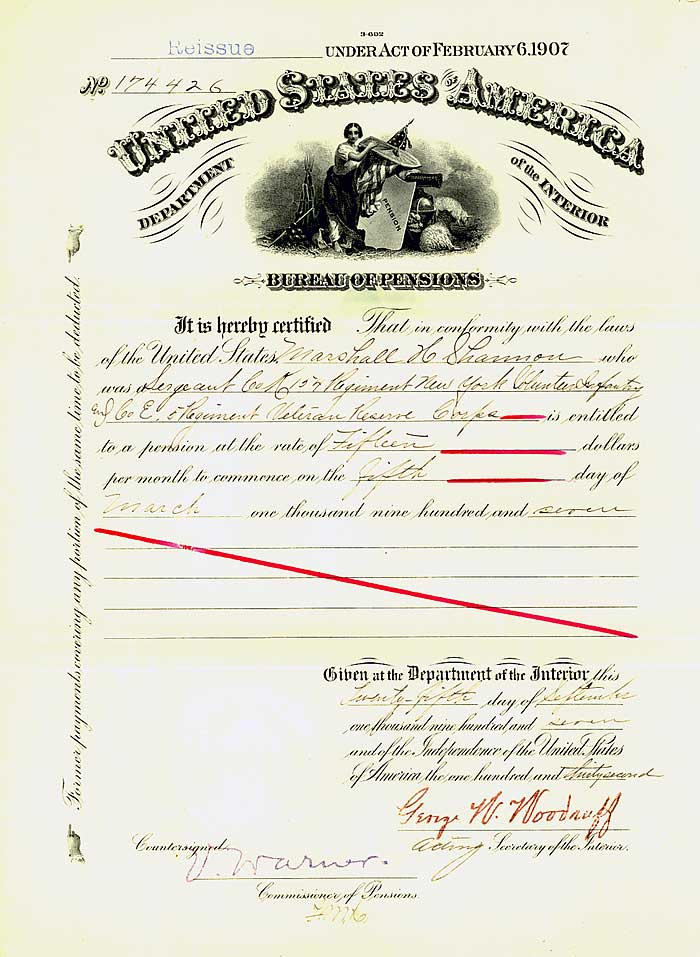 3-002
Reissue UNDER ACT OF FEBRUARY 6, 1907
No. 174426
UNITED STATES OF AMERICA
DEPARTMENT of the INTERIOR
PENSION
BUREAU OF PENSIONS
It is hereby certified That in conformity with the laws
of the United States, Marshall H Shannon who
was a Sergeant Co K 157 Regiment New York Volunteer Infantry
Co E, 5 Regiment Veteran Reserve Corps is entitled
to a pension at the rate of Fifteen dollars
per month to commence on the fifth day of
March one thousand nine hundred and seven
Former payments covering any portion of the same time to be deducted.
Given at the Department of the Interior this
Twenty-fifth day of September
one thousand nine hundred and seven
and of the Independence of the United States
of America the one hundred and thirty second
George W. Woodruff
Countersigned, acting Secretary of the Interior.
V. Warner.
Commissioner of Pensions.